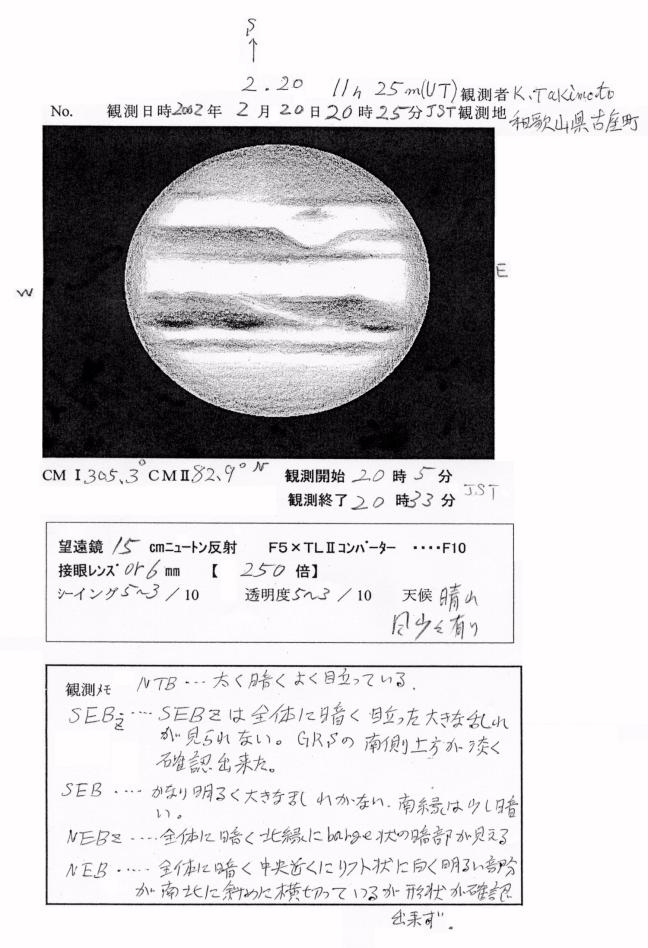 S
2.20 11h 25m(UT) 観測者 K.Takimoto
No. 観測日時2002年 2月20日20時25分JST観測地 和歌山県古座町
W
E
CM Ⅰ 305.3° CMⅡ 82.9° N 観測開始 20時5分
観測終了 20時33分 JST
望遠鏡 15 cmニュートン反射 F5×TLⅡコンバーター ‥‥F10
接眼レンズ or6 mm 【 250 倍】
シーイング 5~3 / 10 透明度 5~3 / 10 天候 晴れ
風少々有り
観測メモ NTB … 太く暗くよく目立っている.
SEBz …. SEBzは全体に暗く目立った大きな乱れ
が見られない。GRSの南側上方が淡く
確認出来た。
SEB …. かなり明るく大きな乱れがない、南縁は少し暗
い。
NEBz ….. 全体に暗く北縁にbarge状の暗部が見える
NEB ….. 全体に暗く中央近くにリフト状に白く明るい部分
が南北に斜めに横切っているが形状が確認
出来ず。